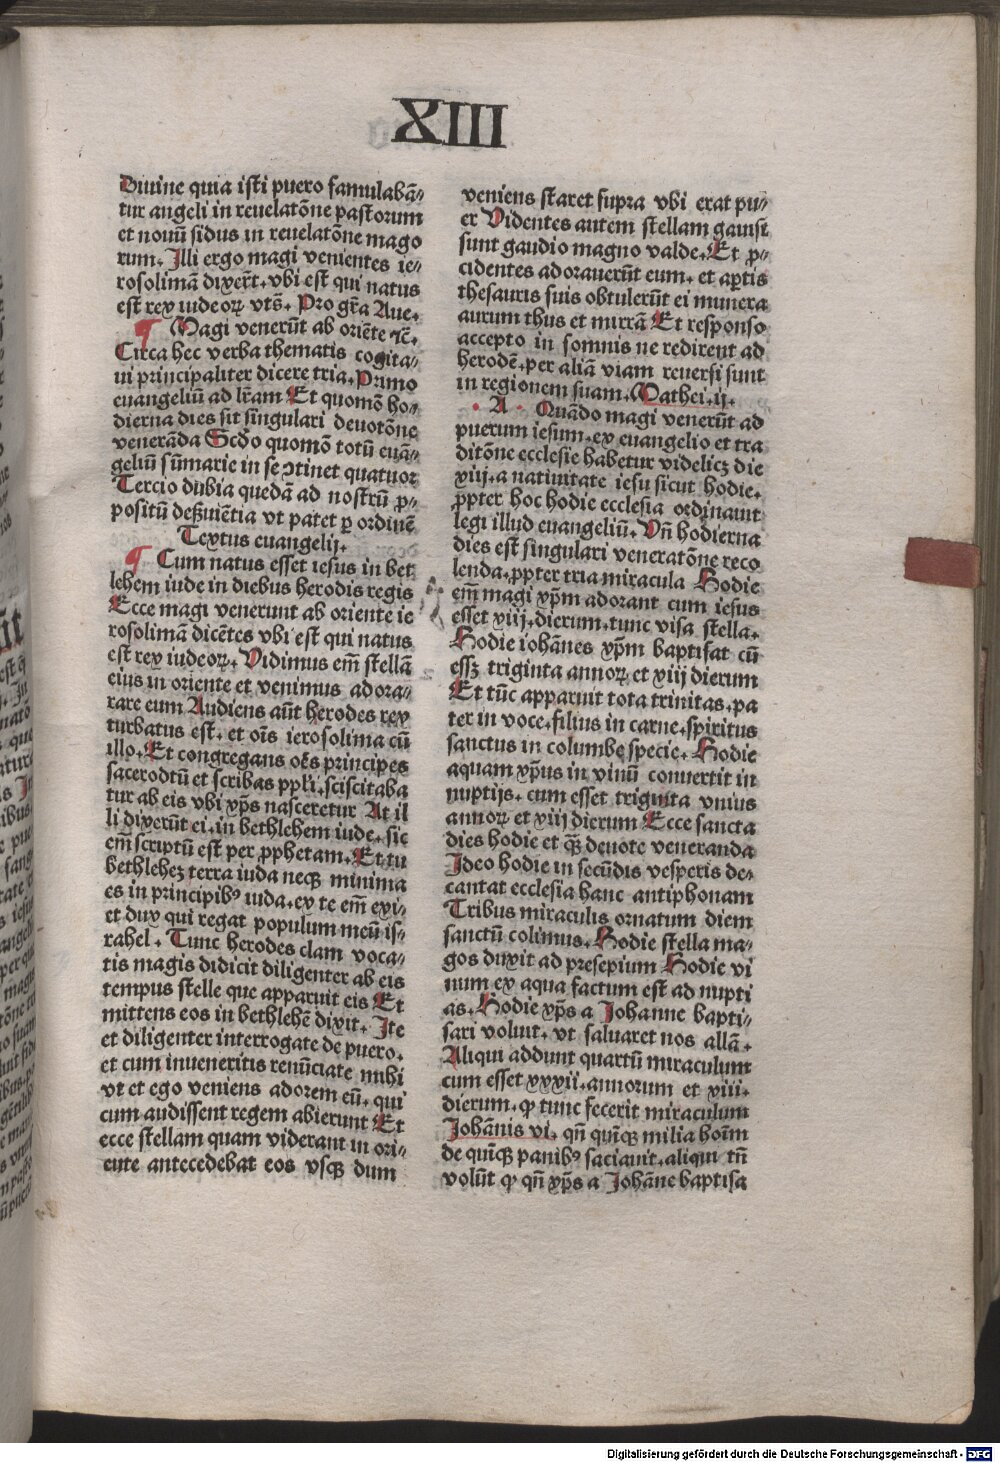 XIII
Diuine quia isti puero famulabã⸗
tur angeli in reuelatõne pastorum
et nouũ sidus in reuelatõne mago
rum. Illi ergo magi venientes ie⸗
rosolimã dixerũt. vbi est qui natus
est rex iudeoꝝ vts̃. Pro gr̃a Aue.
¶ Magi venerũt ab oriẽte ⁊c̃.
Circa hec verba thematis cogita⸗
ui principaliter dicere tria. Primo
euangeliũ ad lr̃am Et quomõ ho⸗
dierna dies sit singulari deuotõne
venerãda Scđo quomõ totũ euã⸗
geliũ sũmarie in se ↄtinet quatuor
Tercio dubia quedã ad nostrũ ꝓ⸗
positũ deßuiẽtia vt patet ꝑ ordinẽ
Textus euangelij.
¶ Cum natus esset iesus in bet
lehem iude in diebus herodis regis
Ecce magi venerunt ab oriente ie
rosolimã dicẽtes vbi est qui natus
est rex iudeoꝝ. Vidimus em̃ stellã
eius in oriente et venimus adora⸗
rare eum Audiens aũt herodes rex
turbatus est. et oĩs ierosolima cũ
illo. Et congregans oẽs principes
sacerodtũ et scribas ppĺi. sciscitaba
tur ab eis vbi xp̃s nasceretur At il
li dixerũt ei. in bethlehem iude. sic
em̃ scriptũ est per ꝓphetam. Et tu
bethleheꝫ terra iuda neqꝫ minima
es in principibꝰ iuda. ex te em̃ exi⸗
et dux qui regat populum meũ is⸗
rahel. Tunc herodes clam voca⸗
tis magis didicit diligenter ab eis
tempus stelle que apparuit eis Et
mittens eos in bethlehẽ dixit. Ite
et diligenter interrogate de puero.
et cum inueneritis renũciate mihi
vt et ego veniens adorem eũ. qui
cum audissent regem abierunt Et
ecce stellam quam viderant in ori⸗
ente antecedebat eos vsqꝫ dum
veniens staret supra vbi erat pu⸗
er Videntes autem stellam gauisi
sunt gaudio magno valde. Et ꝓ⸗
cidentes adorauerũt eum. et aꝑtis
thesauris suis obtulerũt ei munera
aurum thus et mirrã Et responso
accepto in somnis ne redirent ad
herodẽ. per aliã viam reuersi sunt
in regionem suam. Mathei. ij.
· A · Quãdo magi venerũt ad
puerum iesum. ex euangelio et tra
ditõne ecclesie habetur videlicꝫ die
xiij. a natiuitate iesu sicut hodie.
ꝓpter hoc hodie ecclesia ordinauit
legi illud euangeliũ. Vñ hodierna
dies est singulari veneratõne reco
lenda. ꝓpter tria miracula Hodie
em̃ magi xp̃m adorant cum iesus
esset xiij. dierum. tunc visa stella.
Hodie iohãnes xp̃m baptisat cũ
essꝫ triginta annoꝝ et xiij dierum
Et tũc apparuit tota trinitas. pa
ter in voce. filius in carne. spiritus
sanctus in columbe specie. Hodie
aquam xp̃us in vinũ conuertit in
nuptijs. cum esset triginta vnius
annoꝝ et xiij dierum Ecce sancta
dies hodie et q̃ꝫ deuote veneranda
Ideo hodie in secũdis vesperis de⸗
cantat ecclesia hanc antiphonam
Tribus miraculis ornatum diem
sanctũ colimus. Hodie stella ma⸗
gos duxit ad presepium Hodie vi
num ex aqua factum est ad nupti
as. Hodie xp̃s a Johanne bapti⸗
sari voluit. vt saluaret nos allã.
Aliqui addunt quartũ miraculum
cum esset xxxij. annorum et xiij.
dierum. ꝙ tunc fecerit miraculum
Johãnis vi. qñ quĩqꝫ milia hoĩm
de quĩqꝫ panibꝰ saciauit. aliqui tñ
volũt ꝙ qñ xp̃s a Johãne baptisa
Digitalisierung gefördert durch die Deutsche Forschungsgemeinschaft - DFG